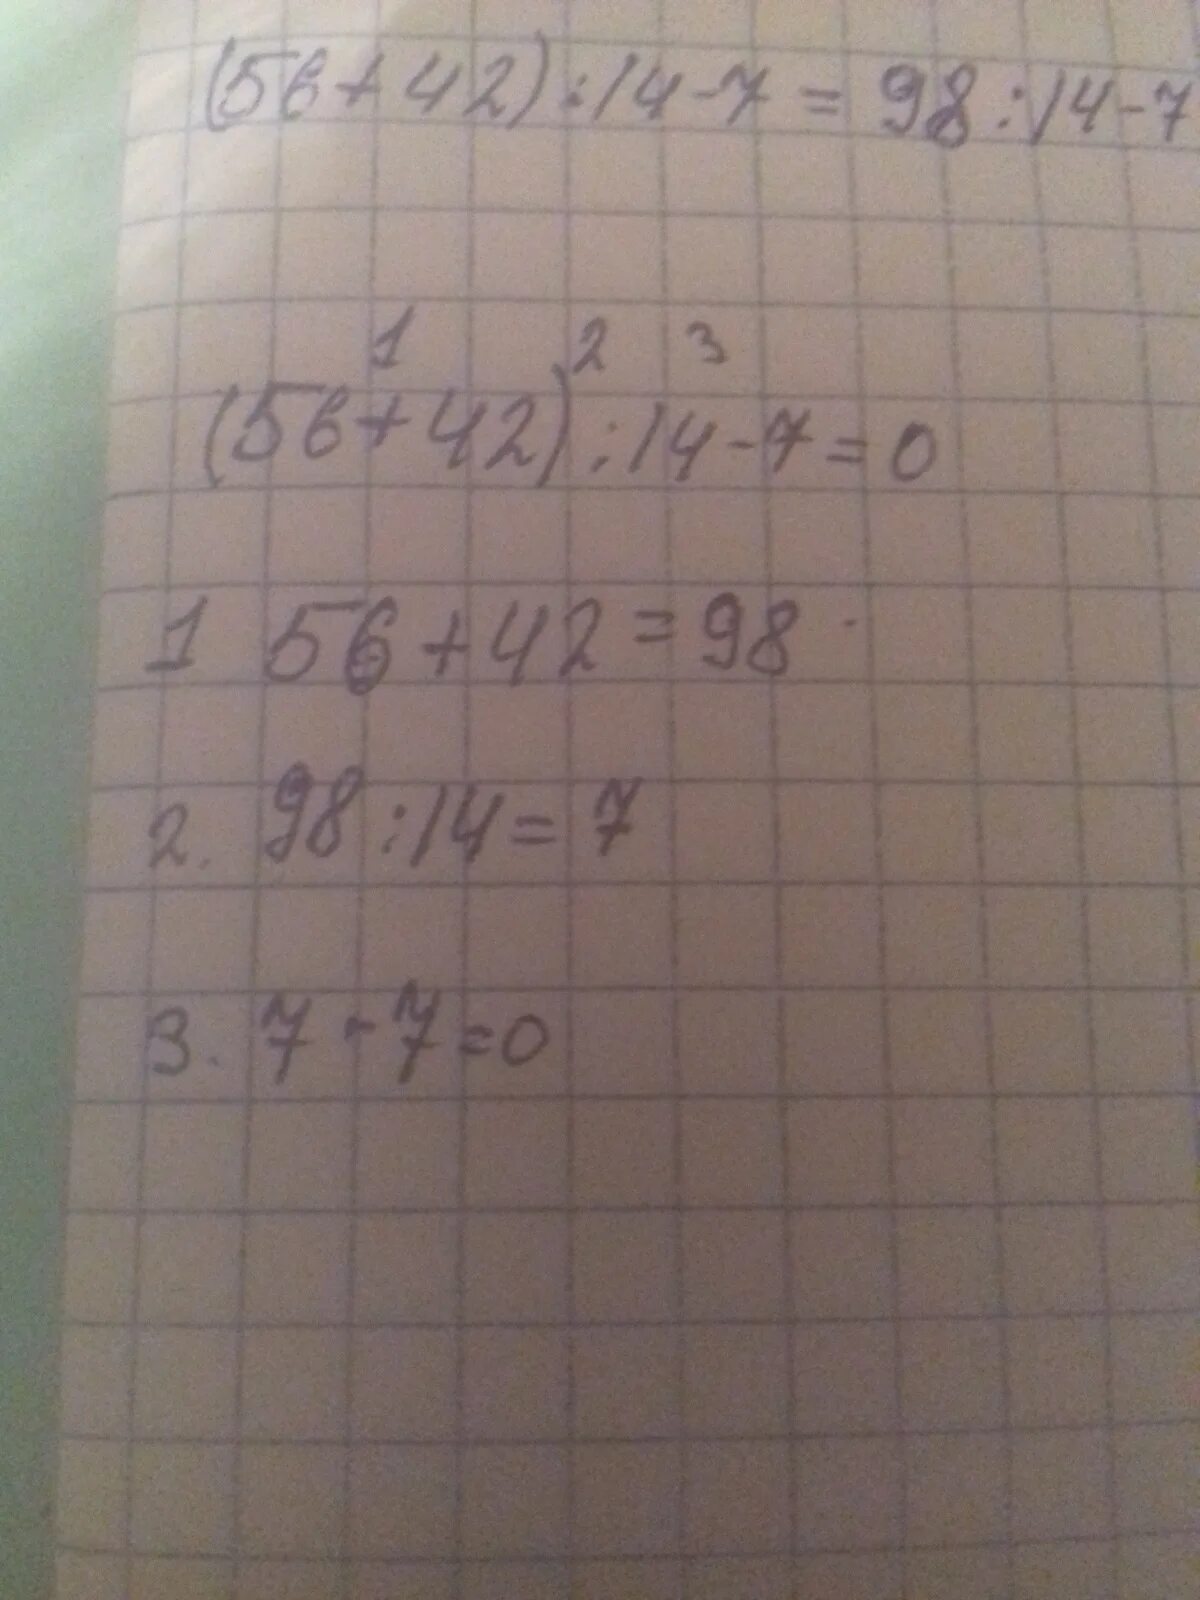 (56+42):14-7=98:14-7
1 2 3
(56+42):14-7=0
1 56+42=98
2. 98:14=7
3. 7-7=0